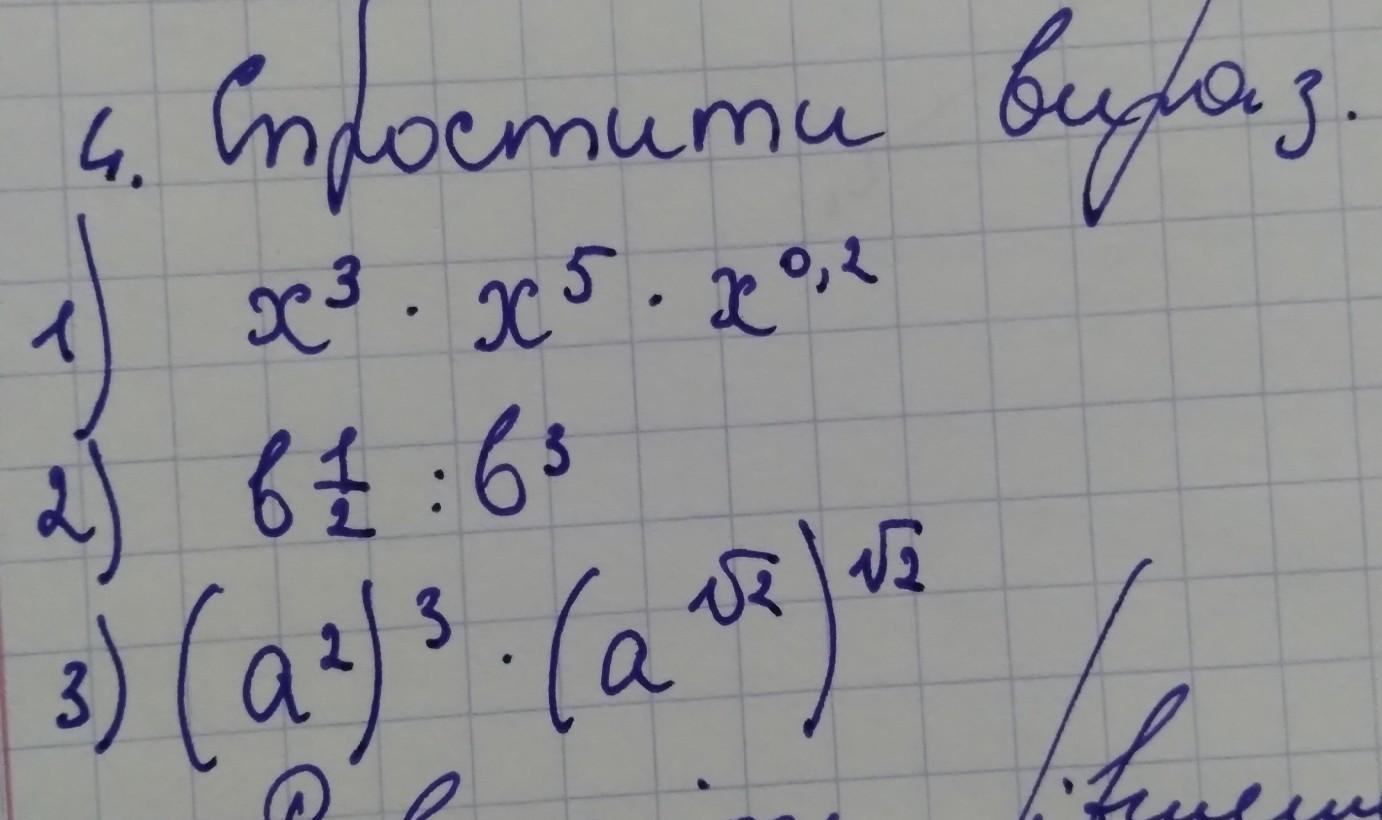 4. Спростити вираз.
1) x³ · x⁵ · x⁰,²
2) b 1/2 : b³
3) (a²)³ · (a^√2)^√2